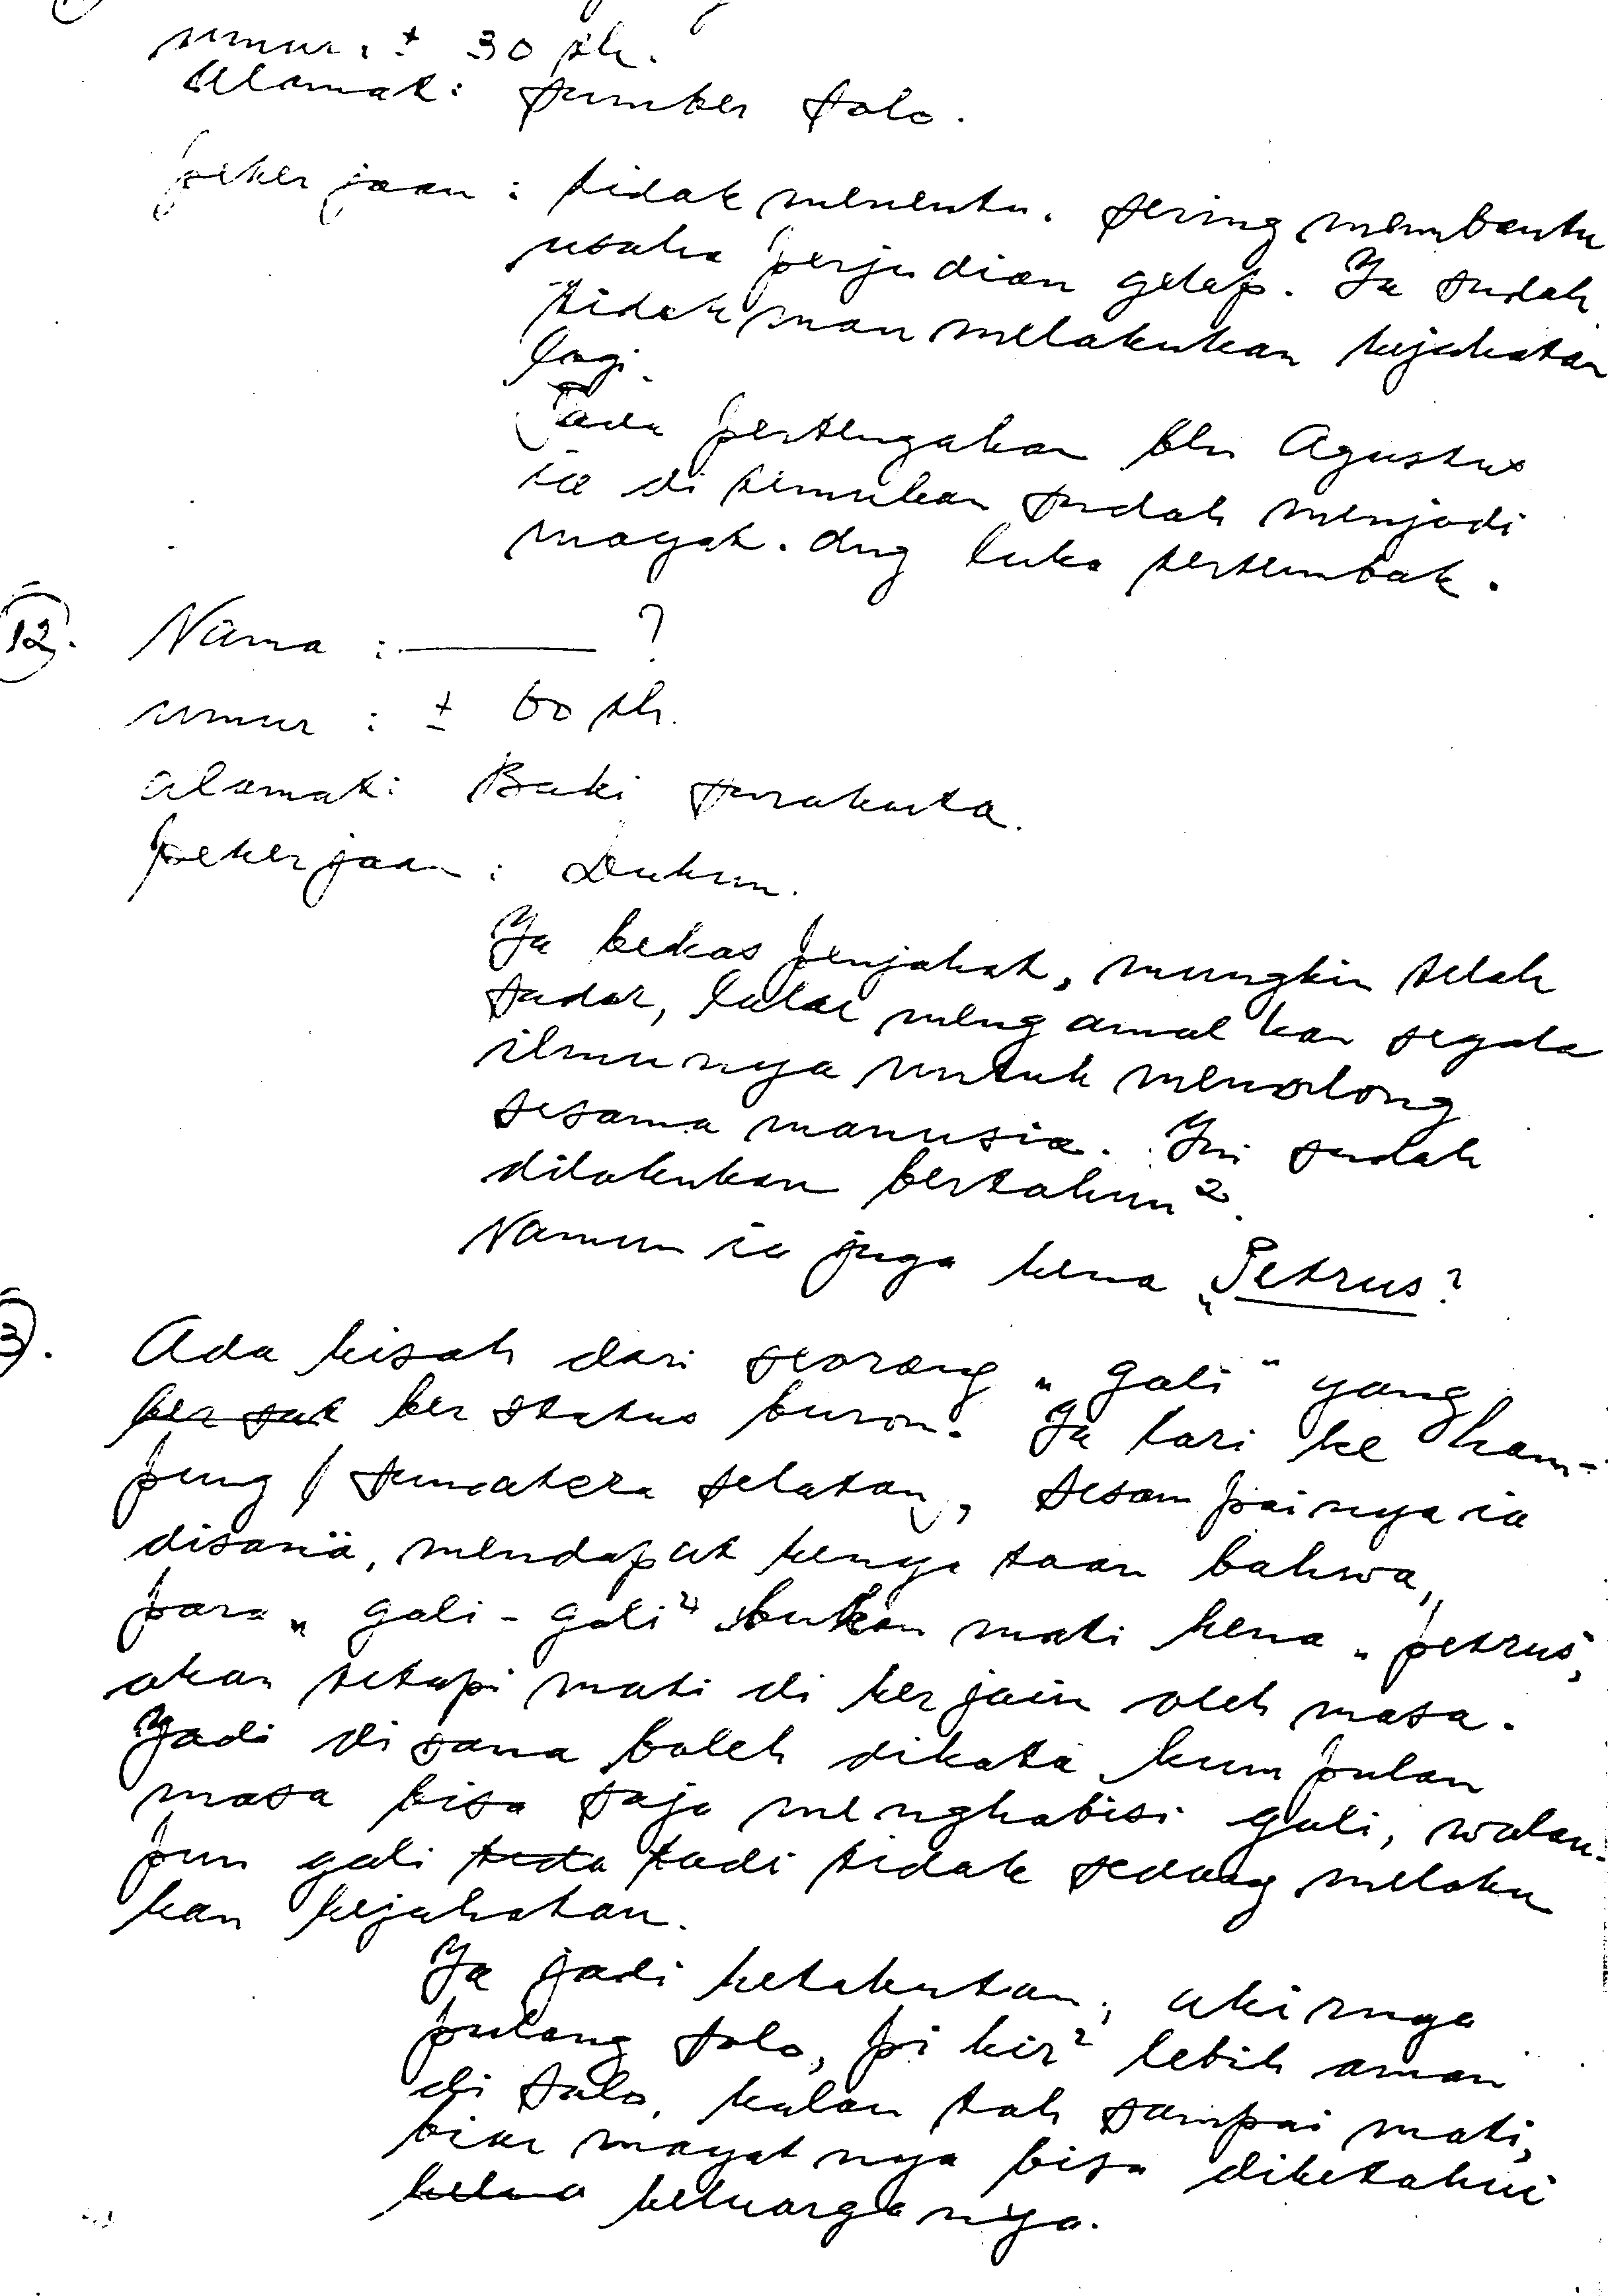 umur : ± 30 th.
alamat : Sumber Solo.
pekerjaan : tidak menentu. Sering membantu
usaha perjudian gelap. Ia sudah
tidak mau melakukan kejahatan
lagi.
Pada pertengahan bln Agustus
ia di temukan sudah menjadi
mayat. dng luka tertembak.
12. Nama : ——— ?
umur : ± 60 th.
alamat : Baki Surakarta.
pekerjaan : Dukun.
Ia bekas penjahat, mungkin telah
sadar, lalu mengamalkan segala
ilmunya untuk menolong
sesama manusia. Ini sudah
dilakukan bertahun².
Namun ia juga kena „Petrus?
3). Ada kisah dari seorang „gali" yang
ber sta berstatus buron. Ia lari ke kam-
pung / Sumatera Selatan, sesampainya ia
disana, mendapat kenyataan bahwa,
para „gali-gali" bukan mati kena „petrus",
akan tetapi mati di kerjain oleh masa.
Jadi disana boleh dikata kumpulan
masa bisa saja menghabisi gali, walau-
pun gali tida tadi tidak sedang melaku
kan kejahatan.
Ia jadi ketakutan, akirnya
pulang Solo, pikir² lebih aman
di Solo, kalau toh sampai mati,
biar mayatnya bisa diketahui
kelua keluarganya.